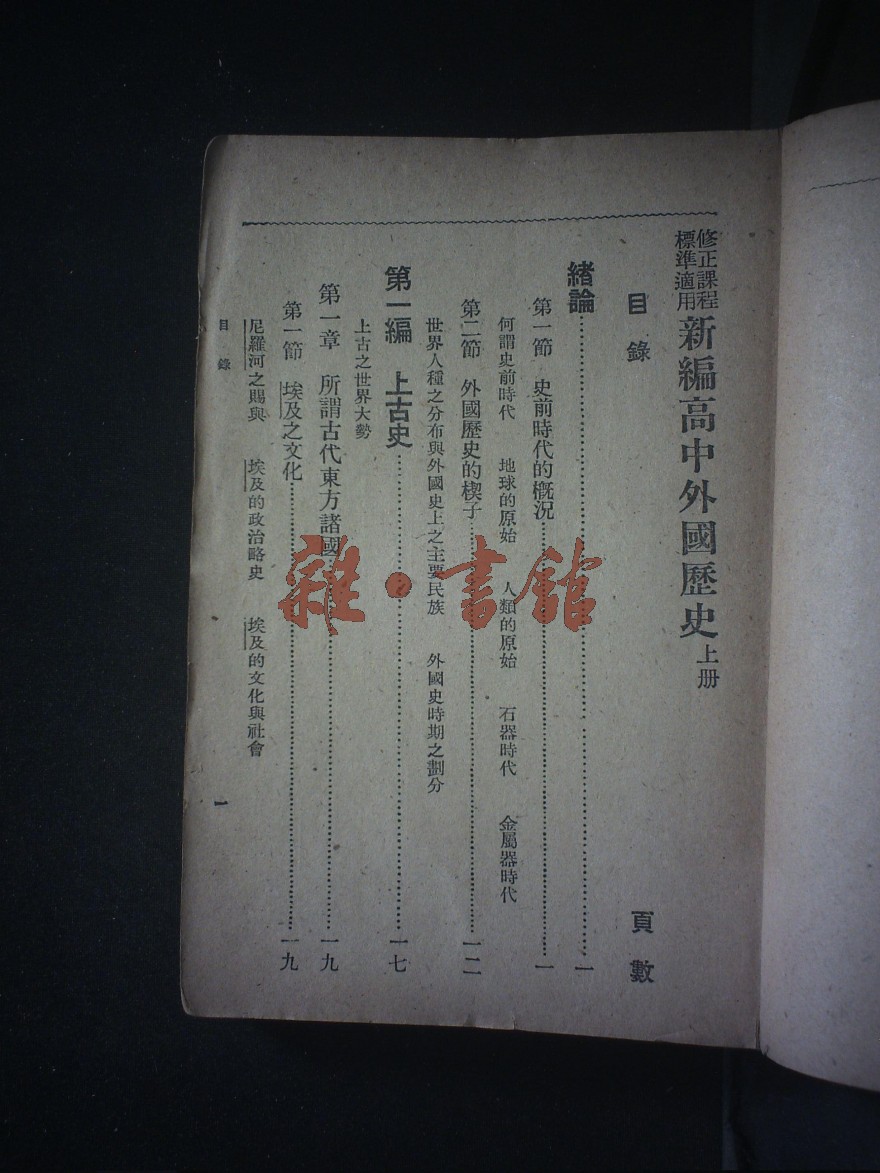 修正課程標準適用 新編高中外國歷史 上册
目錄 頁數
緒論……一
第一節 史前時代的概況……一
何謂史前時代 地球的原始 人類的原始 石器時代 金屬器時代
第二節 外國歷史的楔子……一二
世界人種之分布與外國史上之主要民族 外國史時期之劃分
第一編 上古史……一七
上古之世界大勢
第一章 所謂古代東方諸國……一九
第一節 埃及之文化……一九
尼羅河之賜與 埃及的政治略史 埃及的文化與社會
目錄 一
雜·書館